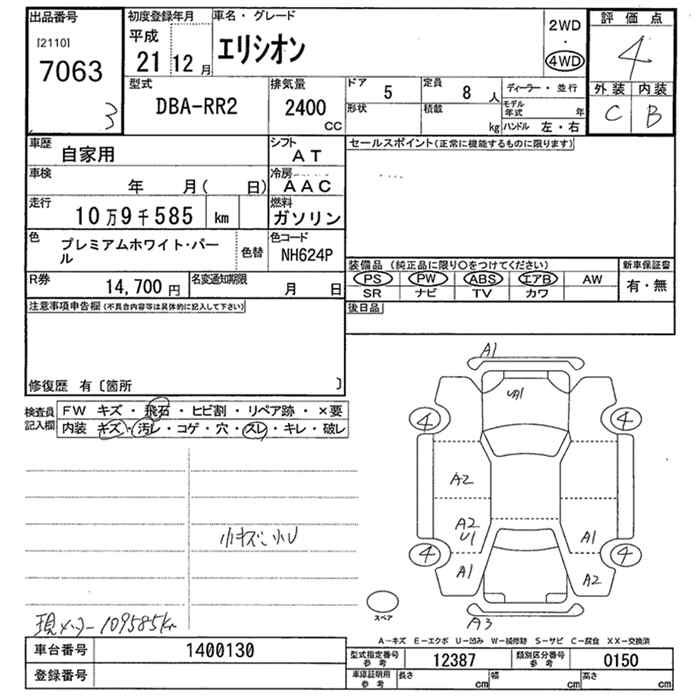 出品番号 初度登録年月 車名・グレード 2WD 評価点
[2110] 平成 エリシオン ・ 4
7063 21 12月 4WD 外装 内装
3 C B
型式 排気量 ドア 5 定員 8人 ディーラー・並行
DBA-RR2 2400 形状 積載 モデル年式 年
CC kg ハンドル 左・右
車歴 自家用 シフト AT セールスポイント(正常に機能するものに限ります)
車検 年 月( 日) 冷房 AAC
走行 10万9千585 km 燃料 ガソリン
色 プレミアムホワイト・パール 色替 色コード NH624P
装備品 (純正品に限り○をつけてください) 新車保証書
PS PW ABS エアB AW 有・無
SR ナビ TV カワ
R券 14,700円 名変通知期限 月 日
後日品
注意事項申告欄(不具合内容等は具体的に記入して下さい)
修復歴 有〔箇所 〕
検査員記入欄 FW キズ・飛石・ヒビ割・リペア跡・×要
内装 キズ・汚レ・コゲ・穴・スレ・キレ・破レ
A1
U1
4 4
A2
A2
U1 A1
4 4
A1 A2
A3
小キズ小U
スペア
現メーター109585km
A−キズ E−エクボ U−凹み W−補修跡 S−サビ C−腐食 XX−交換済
車台番号 1400130
登録番号
型式指定番号 参考 12387 類別区分番号 参考 0150
車庫証明用 参考 長さ cm 幅 cm 高さ cm